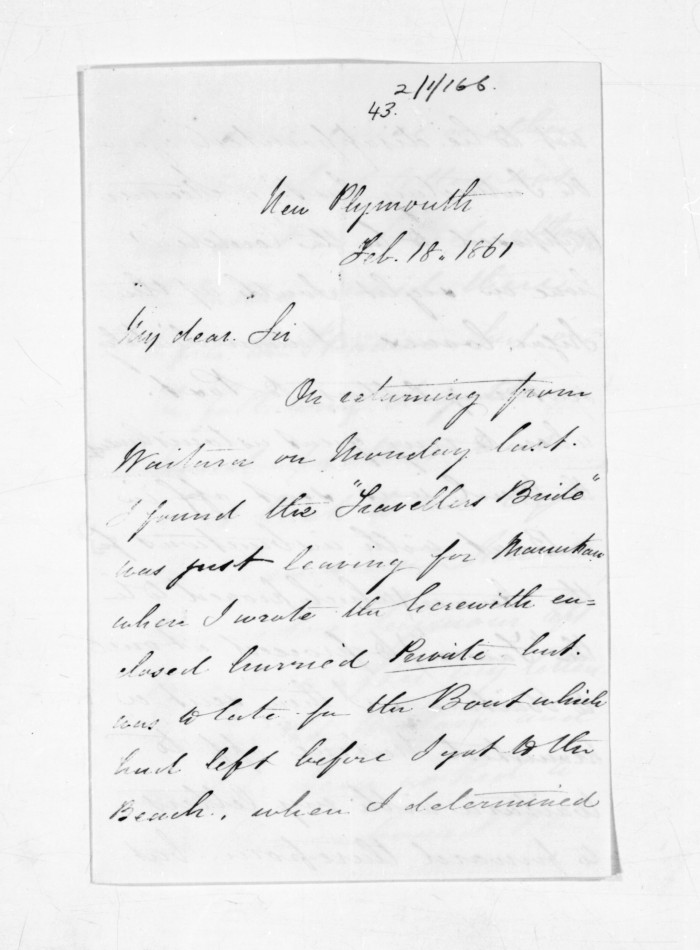 2/1/166.
43.
New Plymouth
Feb. 18. 1861
My dear Sir
On returning from
Waitara on Monday last.
I found the "Travellers Bride"
was just leaving for Manukau
when I wrote the herewith en=
closed hurried Private but.
was to late for the Boat which
had left before I got to the
Beach, when I determined